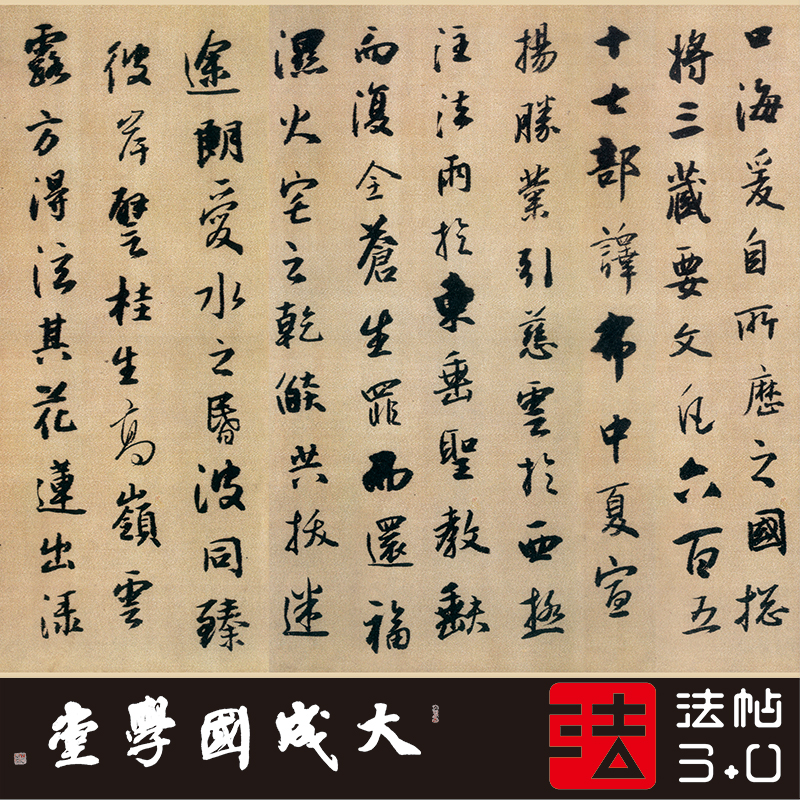 口海爰自所歷之國揔
將三藏要文凡六百五
十七部譯布中夏宣
揚勝業引慈雲於西極
注法雨於東垂聖教缺
而復全蒼生罪而還福
濕火宅之乾燄共拔迷
途朗愛水之昬波同臻
彼岸譬桂生高嶺雲
露方得泫其花蓮出淥
大成國學堂
法
法帖
3.0